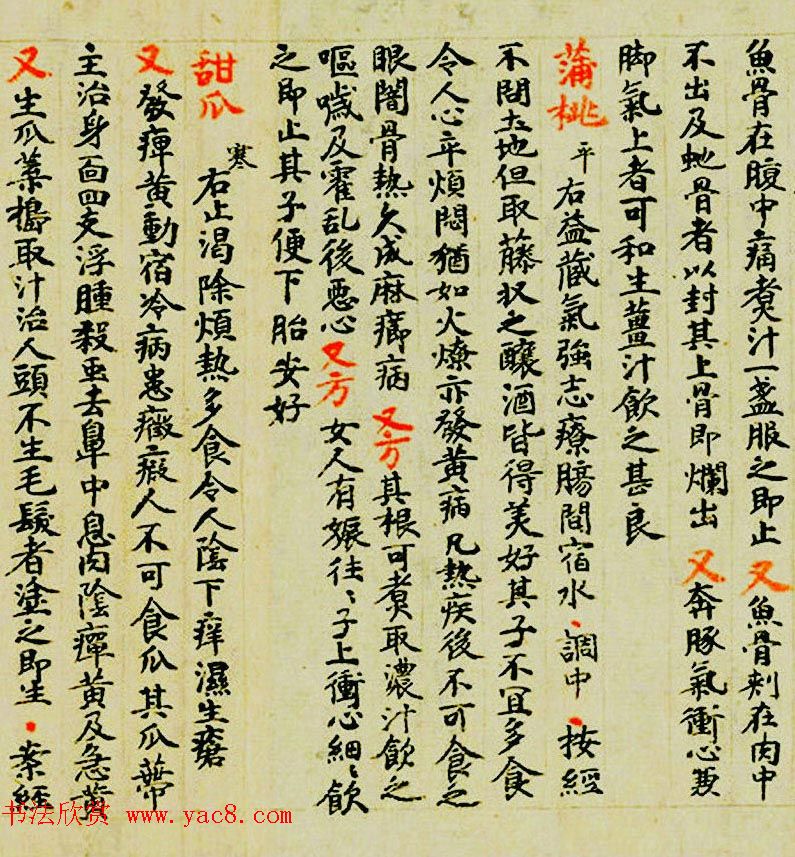 魚骨在腹中痛煑汁一盞服之即止 又 魚骨刾在肉中
不出及虵骨者以封其上骨即爛出 又 奔豚氣衝心兼
脚氣上者可和生薑汁飲之甚良
蒲桃 平 右益藏氣強志療腸間宿水·調中·按經
不問土地但取藤収之釀酒皆得美好其子不冝多食
令人心卒煩悶猶如火燎亦發黃病凡熱疾後不可食之
眼闇骨熱久成麻癤病 又方 其根可煑取濃汁飲之
嘔噦及霍乱後惡心 又方 女人有娠往〻子上衝心細〻飲
之即止其子便下胎安好
甜瓜 寒 右止渴除煩熱多食令人陰下痒濕生瘡
又 發癉黃動宿冷病患癥瘕人不可食瓜其瓜蔕
主治身面四支浮腫殺蠱去鼻中息肉陰癉黃及急黃
又 生瓜葉擣取汁治人頭不生毛髮者塗之即生·案經
书法欣赏 www.yac8.com